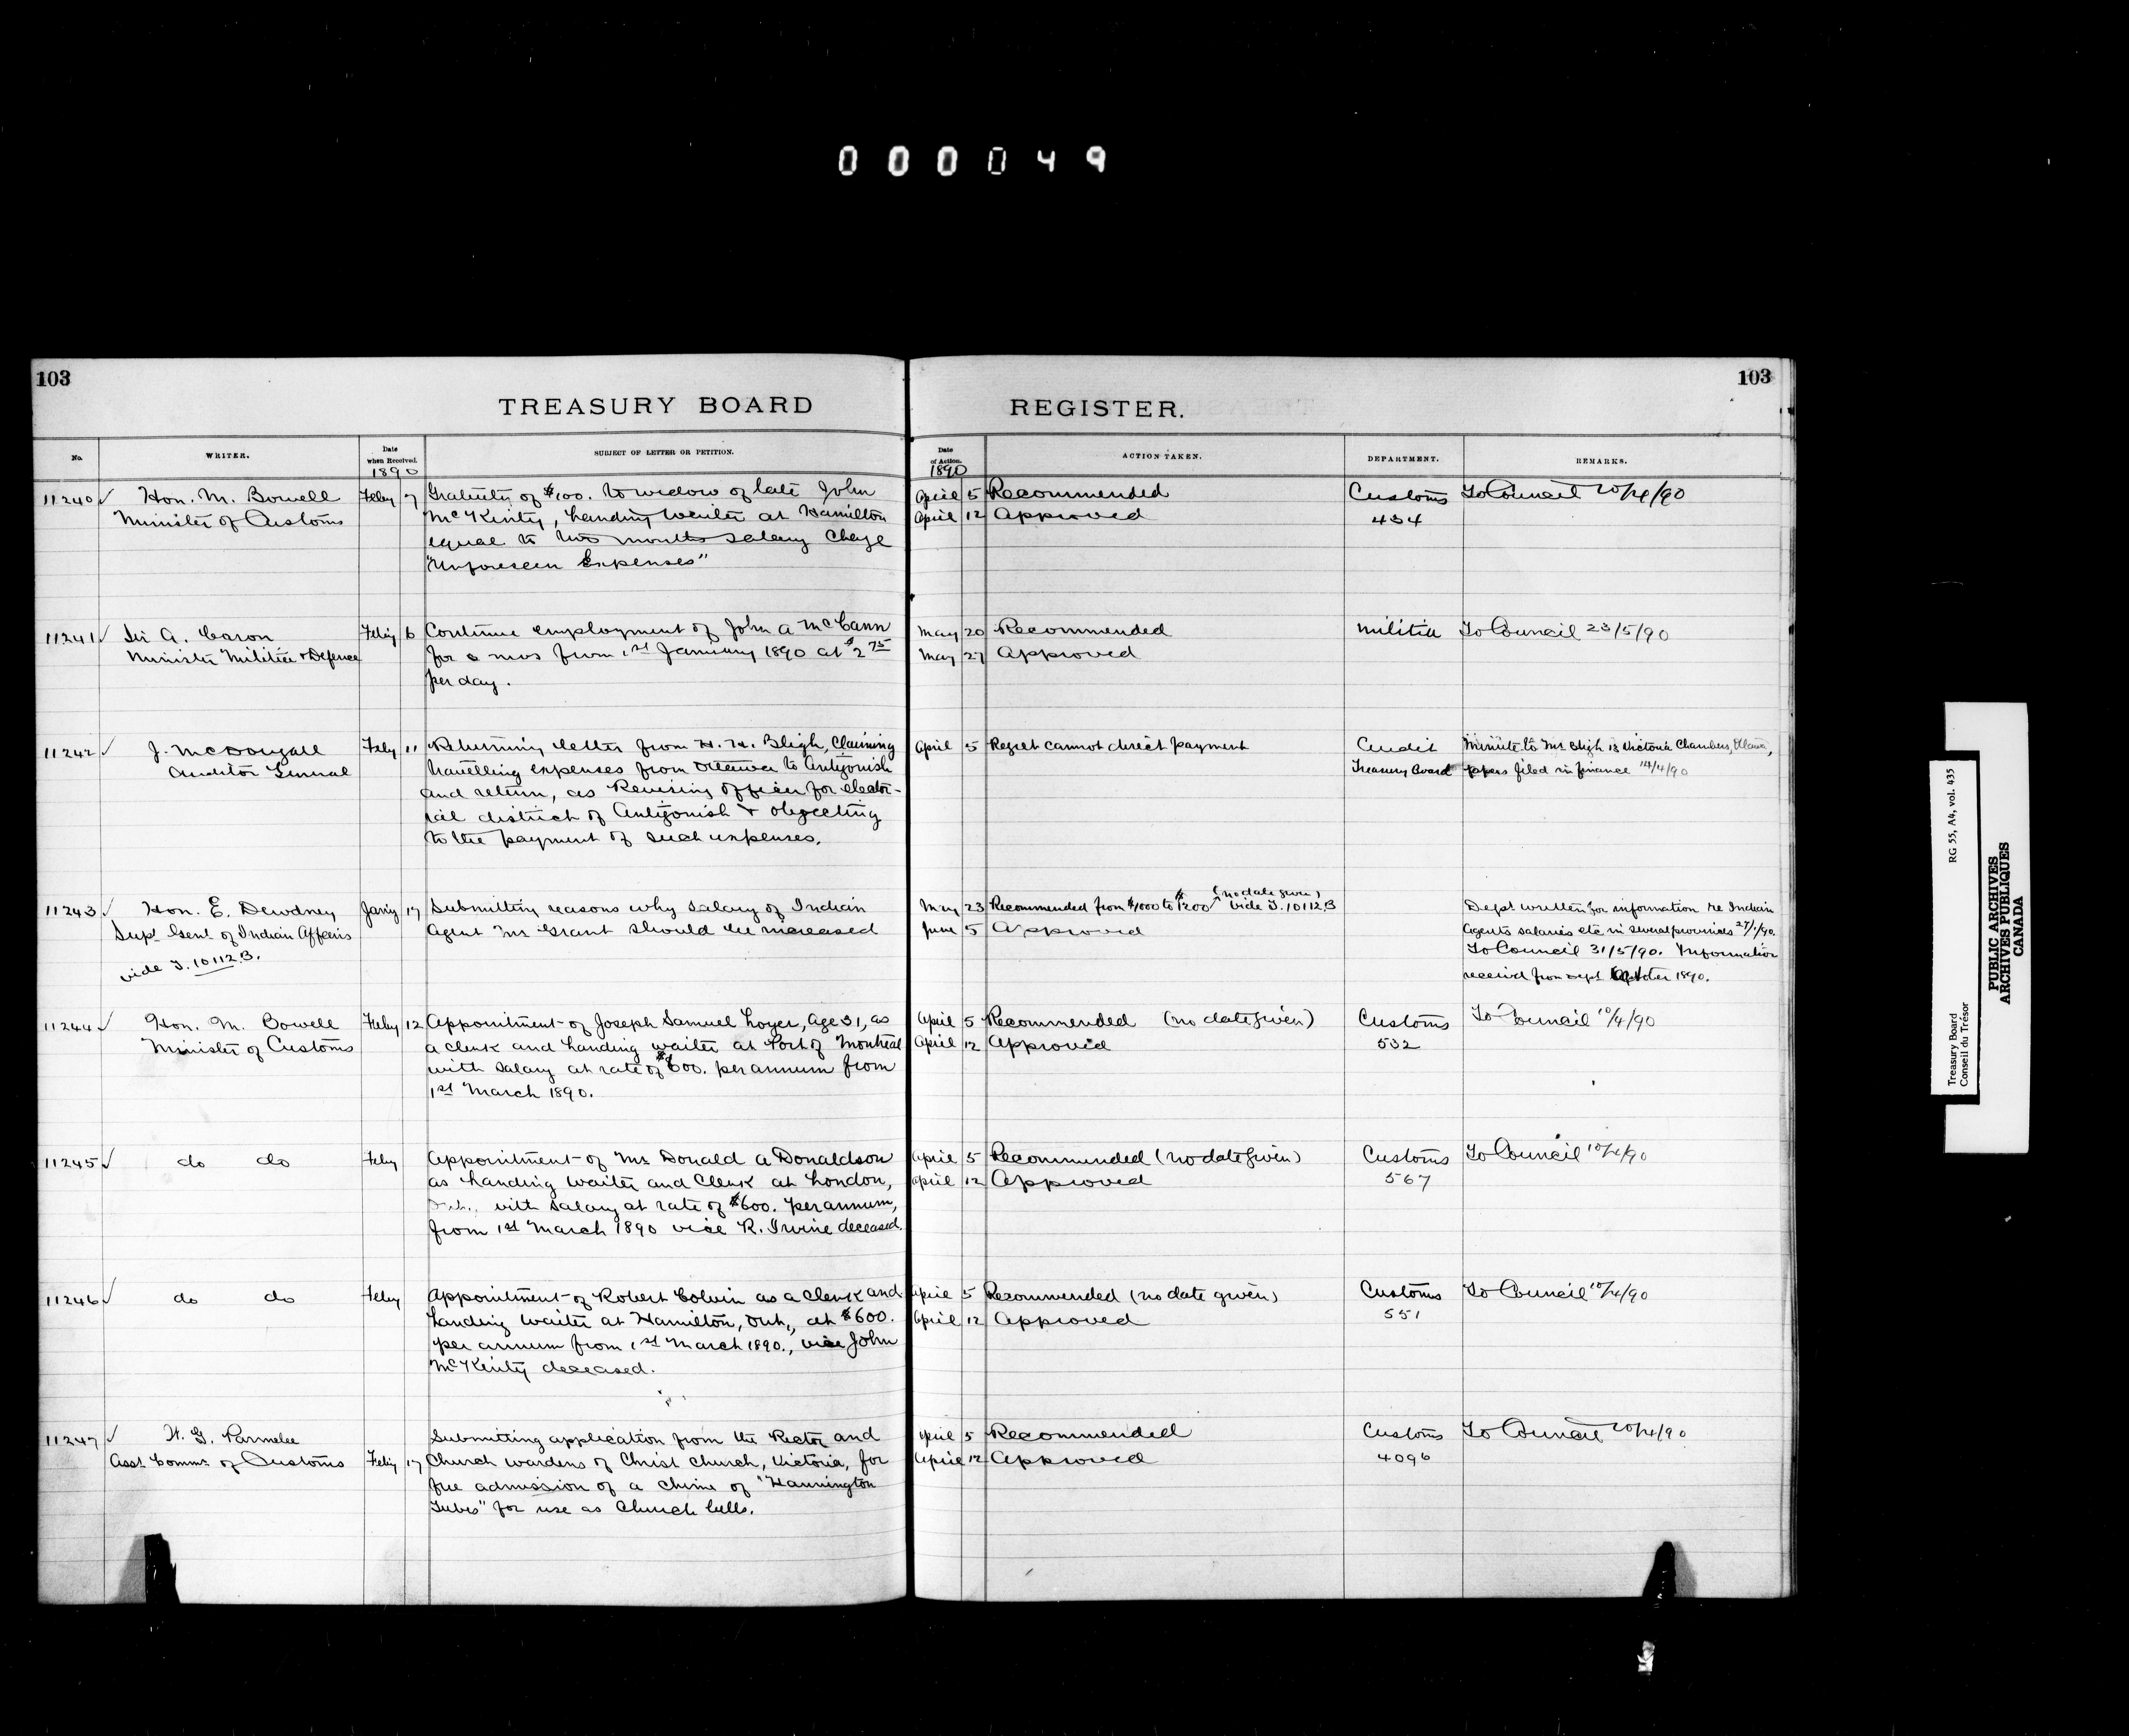 000049
103
103
TREASURY BOARD
REGISTER.
No.
WRITER.
Date
when Received.
1890
SUBJECT OF LETTER OR PETITION.
Date
of Action.
1890
ACTION TAKEN.
DEPARTMENT.
REMARKS.
11240 Hon. M. Bowell Feby 7 Gratuity of $100. to widow of late John April 5 Recommended Customs To Council 10/4/90
Minister of Customs McKinty, Landing Waiter at Hamilton April 12 Approved 434
equal to two months salary Charge
"Unforeseen Expenses"
11241 Sir A. Caron Feby 6 Continue employment of John A McCann May 20 Recommended Militia To Council 23/5/90
Minister Militia & Defence for mos from 1st January 1890 at $2 75 May 27 Approved
per day.
11242 J. McDougall Feby 11 Returning letter from H. H. Bligh, Claiming April 5 Regret cannot direct payment Audit Minute to Mr Bligh 18 Victoria Chambers, Ottawa,
Auditor General travelling expenses from Ottawa to Antigonish Treasury Board papers filed in finance 14/4/90
and return, as Revising Officer for elector-
ial district of Antigonish & objecting
to the payment of such expenses.
11243 Hon. E. Dewdney Jany 17 Submitting reasons why salary of Indian May 23 Recommended from $1000 to $1200 (no date given) vide T. 10112B Dept written for information re Indian
Supt Genl of Indian Affairs Agent Mr Grant should be increased June 5 Approved Agents salaries etc in several provinces 27/1/90.
vide T. 10112.B. To Council 31/5/90. Information
received from Dept 1890.
11244 Hon. M. Bowell Feby 12 Appointment of Joseph Samuel Loyer, age 31, as April 5 Recommended (no date given) Customs To Council 10/4/90
Minister of Customs a clerk and Landing waiter at Port of Montreal April 12 Approved 532
with salary at rate of $600. per annum from
1st March 1890.
11245 do do Feby Appointment of Mr Donald A Donaldson April 5 Recommended (no date given) Customs To Council 10/4/90
as Landing Waiter and Clerk at London, April 12 Approved 567
with salary at rate of $600. per annum,
from 1st March 1890 vice R. Irvine deceased.
11246 do do Feby Appointment of Robert Colvin as a Clerk and April 5 Recommended (no date given) Customs To Council 10/4/90
Landing Waiter at Hamilton, Ont., at $600. April 12 Approved 551
per annum from 1st March 1890., vice John
McKinty deceased.
11247 W. G. Parmelee Submitting application from the Rector and April 5 Recommended Customs To Council 10/4/90
Asst Commr of Customs Feby 17 Church wardens of Christ Church, Victoria, for April 12 Approved 4096
free admission of a chime of "Hannington
Tubes" for use as Church bells.
RG 55, A4, vol. 435
Treasury Board
Conseil du Trésor
PUBLIC ARCHIVES
ARCHIVES PUBLIQUES
CANADA